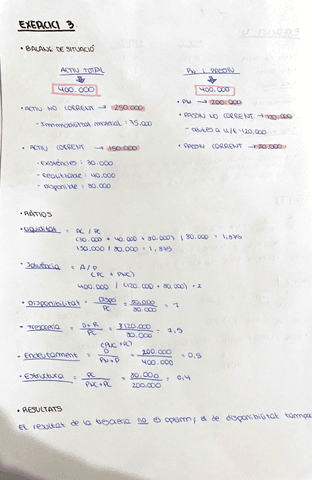 EXERCICI 3.
• BALANÇ DE SITUACIÓ
ACTIU TOTAL
400.000
• ACTIU NO CORRENT → 250.000
- Immobilitzat material:
• ACTIU CORRENT → 150.000
- Existències: 30.000
- Realitzable: 40.000
- Disponible: 80.000
PN I PASSIU
400.000
• PN → 200.000
• PASSIU NO CORRENT →
- deutes a ll/t 120.000
• PASSIU CORRENT → 80.000
• RÀTIOS
• Liquiditat = AC / PC
(30.000 + 40.000 + 80.000) / 80.000 = 1,875
150.000 / 80.000 = 1,875
• Solvència = A / P
(PC + PNC)
400.000 / (120.000 + 80.000) = 2
• Disponibilitat = Dispo / PC = 80.000 / 80.000 = 1
• Tresoreria = D+R / PC = 120.000 / 80.000 = 1,5
(PNC + PC)
• Endeutament = D / PN+D = 200.000 / 400.000 = 0,5
• Estructura = PC / PNC+PC = 80.000 / 200.000 = 0,4
• RESULTATS
El resultat de la tresoreria no és òptim, el de disponibilitat tampoc